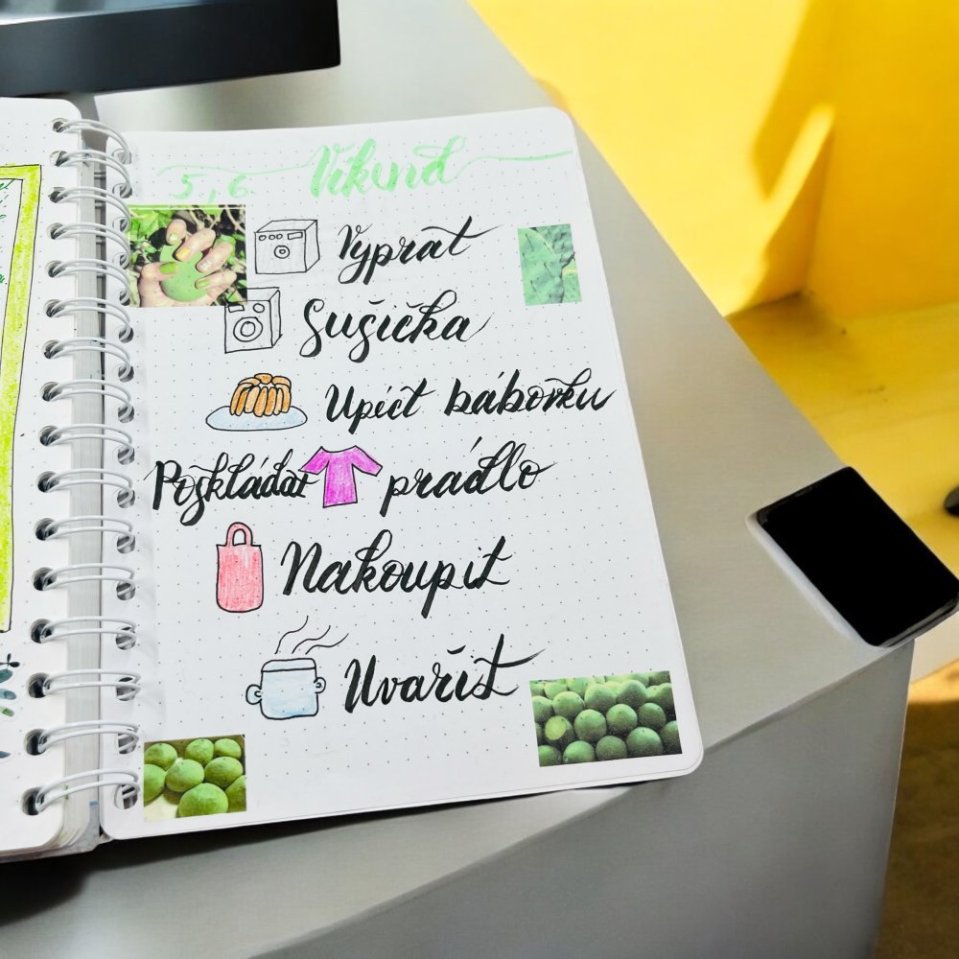 5, 6 Víkend
Vyprat
Sušička
Upéct bábovku
Poskládat prádlo
Nakoupit
Uvařit